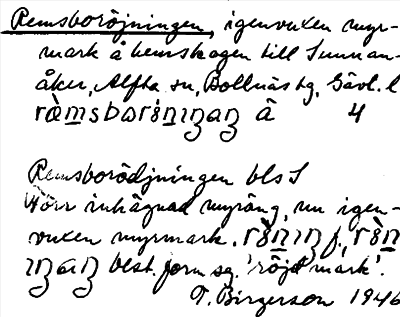 Remsboröjningen, igenvuxen myr-
mark å hemskogen till Sunnan-
åker, Alfta sn, Bollnäs tg, Gävl. l
â 4
Remsborödjningen bls S
Förr inhägnad myräng, nu igen-
vuxen myrmark.
best. form sg. 'röjd mark'.
T. Birgerson 1946